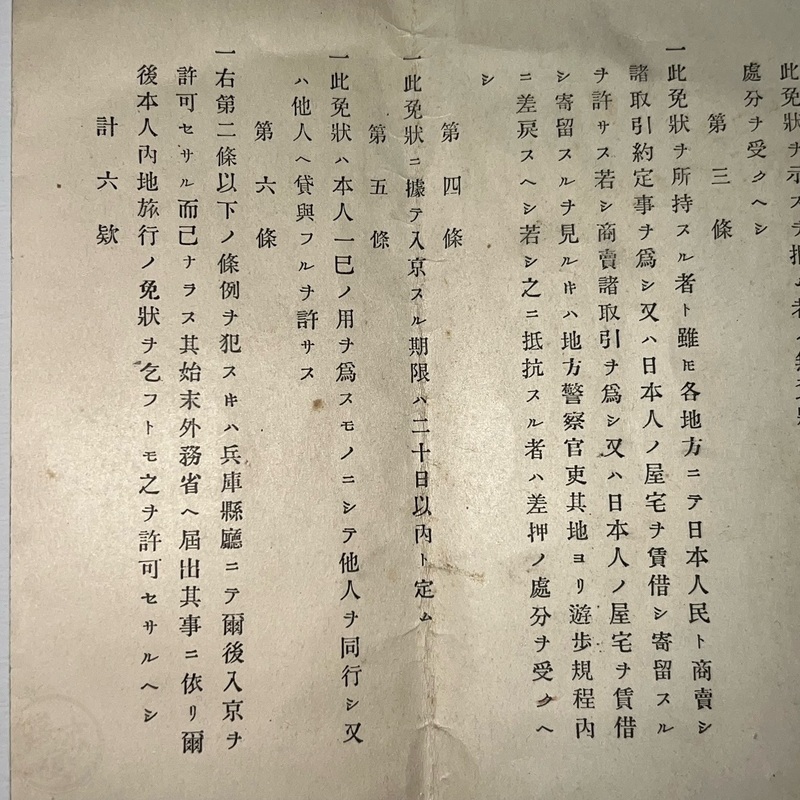 此免狀ヲ示ス
處分ヲ受クヘシ
第三條
一此免狀ヲ所持スル者ト雖𪜈各地方ニテ日本人民ト商賣シ
諸取引約定事ヲ爲シ又ハ日本人ノ屋宅ヲ賃借シ寄留スル
ヲ許サス若シ商賣諸取引ヲ爲シ又ハ日本人ノ屋宅ヲ賃借
シ寄留スルヲ見ルキハ地方警察官吏其地ヨリ遊歩規程內
ニ差戻スヘシ若シ之ニ抵抗スル者ハ差押ノ處分ヲ受クヘ
シ
第四條
一此免狀ニ據テ入京スル期限ハ二十日以內ト定ム
第五條
一此免狀ハ本人一巳ノ用ヲ爲スモノニシテ他人ヲ同行シ又
ハ他人ヘ貸與フルヲ許サス
第六條
一右第二條以下ノ條例ヲ犯スキハ兵庫縣廳ニテ爾後入京ヲ
許可セサル而已ナラス其始末外務省ヘ屆出其事ニ依リ爾
後本人內地旅行ノ免狀ヲ乞フトモ之ヲ許可セサルヘシ
計六欵